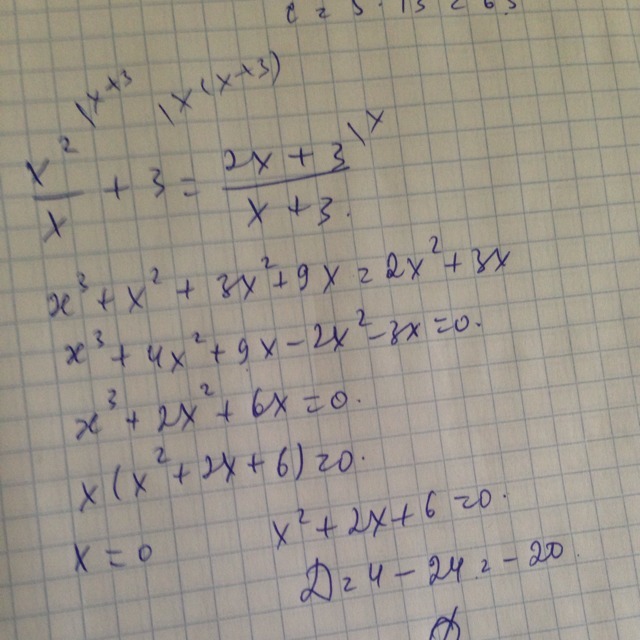 x²/x \x+3 + 3 \x(x+3) = (2x + 3)/(x + 3) \x
x³ + x² + 3x² + 9x = 2x² + 3x
x³ + 4x² + 9x - 2x² - 3x = 0.
x³ + 2x² + 6x = 0.
x(x² + 2x + 6) = 0.
x = 0 x² + 2x + 6 = 0.
D = 4 - 24 = -20.
Ø